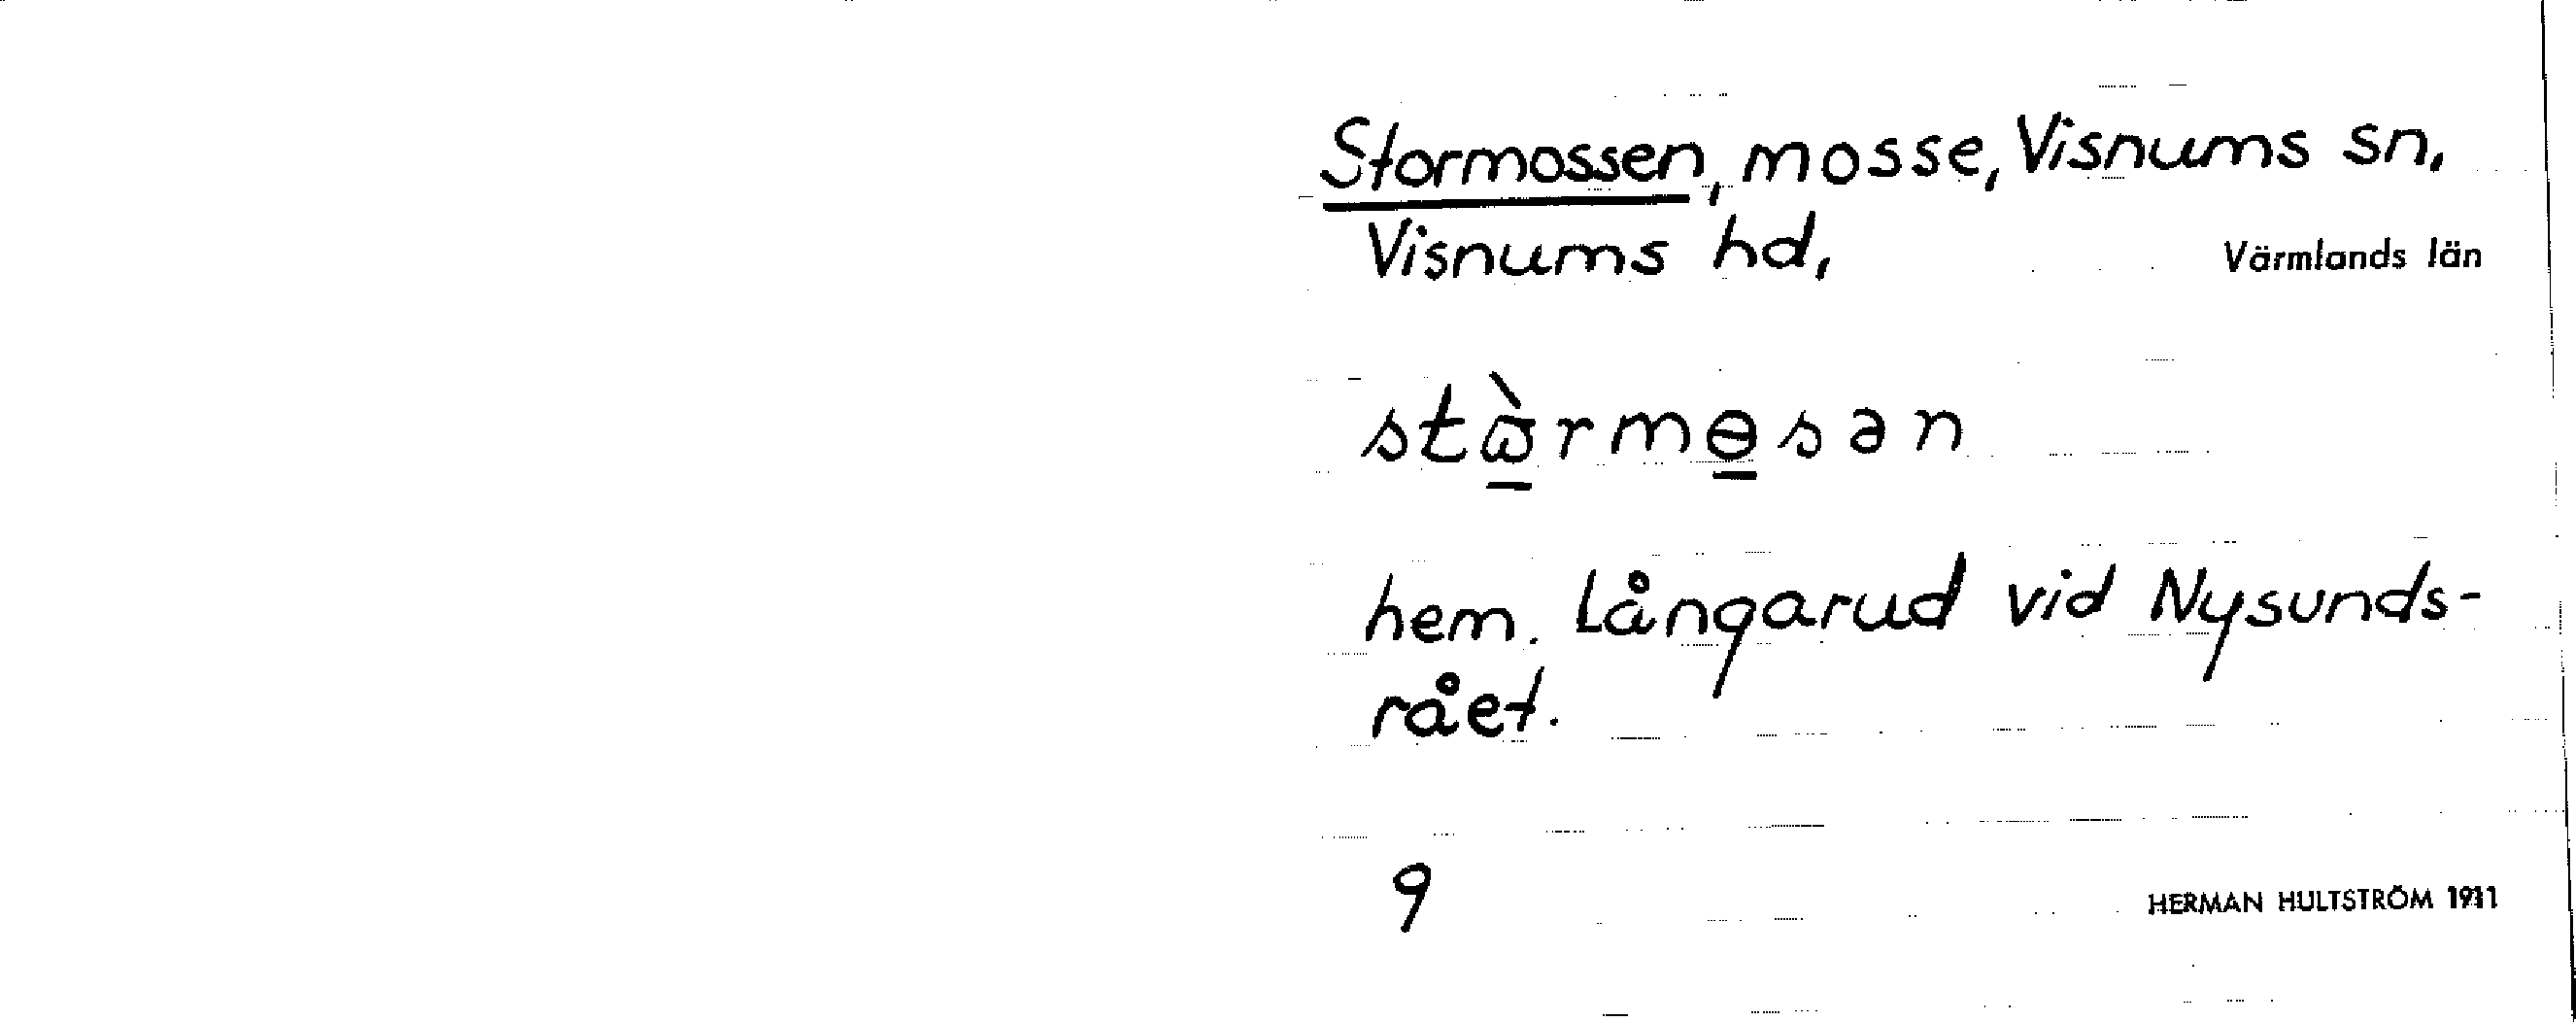 Stormossen, mosse, Visnums sn,
Visnums hd, Värmlands län
stὼ̲rmɵ̲sən
hem. Långarud vid Nysunds-
rået.
9 HERMAN HULTSTRÖM 1911